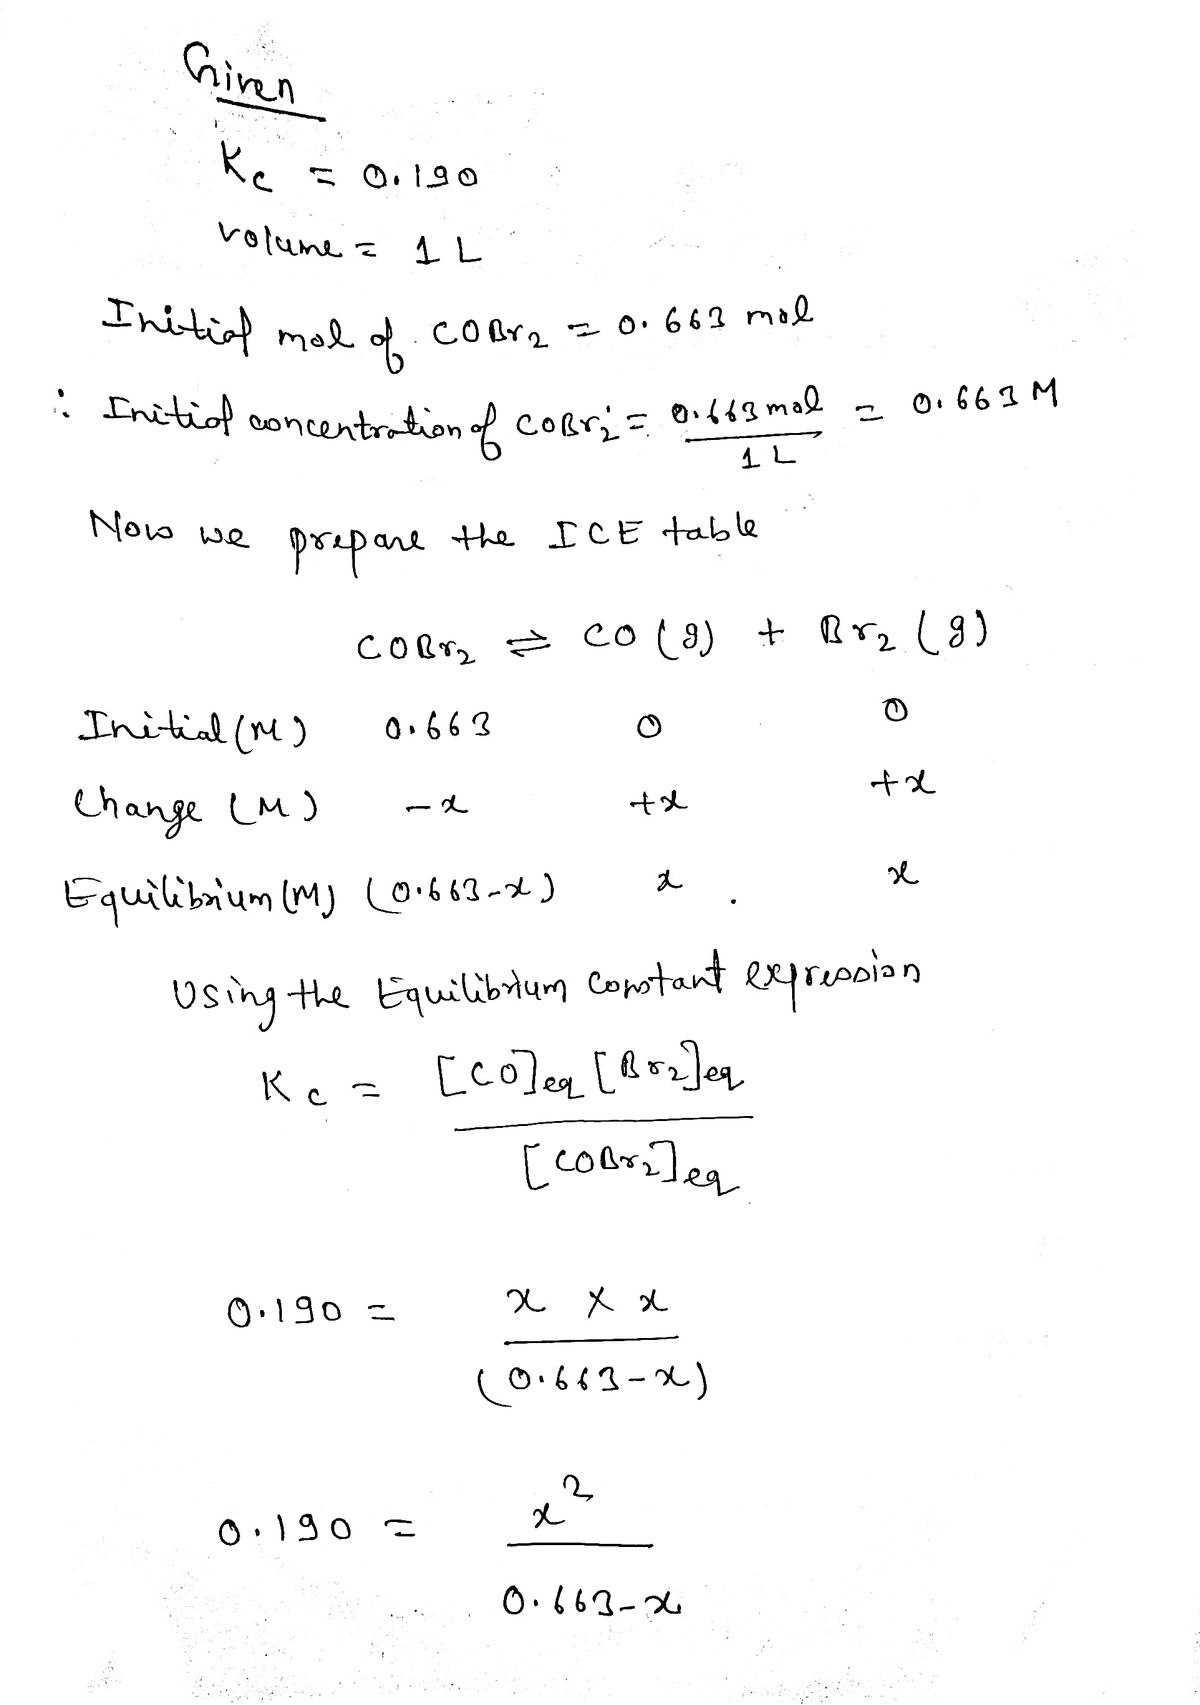 Given
Kc = 0.190
volume = 1 L
Initial mol of COBr2 = 0.663 mol
∴ Initial concentration of COBr2 = 0.663 mol = 0.663 M
1 L
Now we prepare the ICE table
COBr2 ⇌ CO (g) + Br2 (g)
Initial (M) 0.663 0 0
Change (M) -x +x +x
Equilibrium (M) (0.663-x) x x
Using the Equilibrium constant expression
Kc = [CO]eq [Br2]eq
[COBr2]eq
0.190 = x × x
(0.663-x)
0.190 = x²
0.663-x